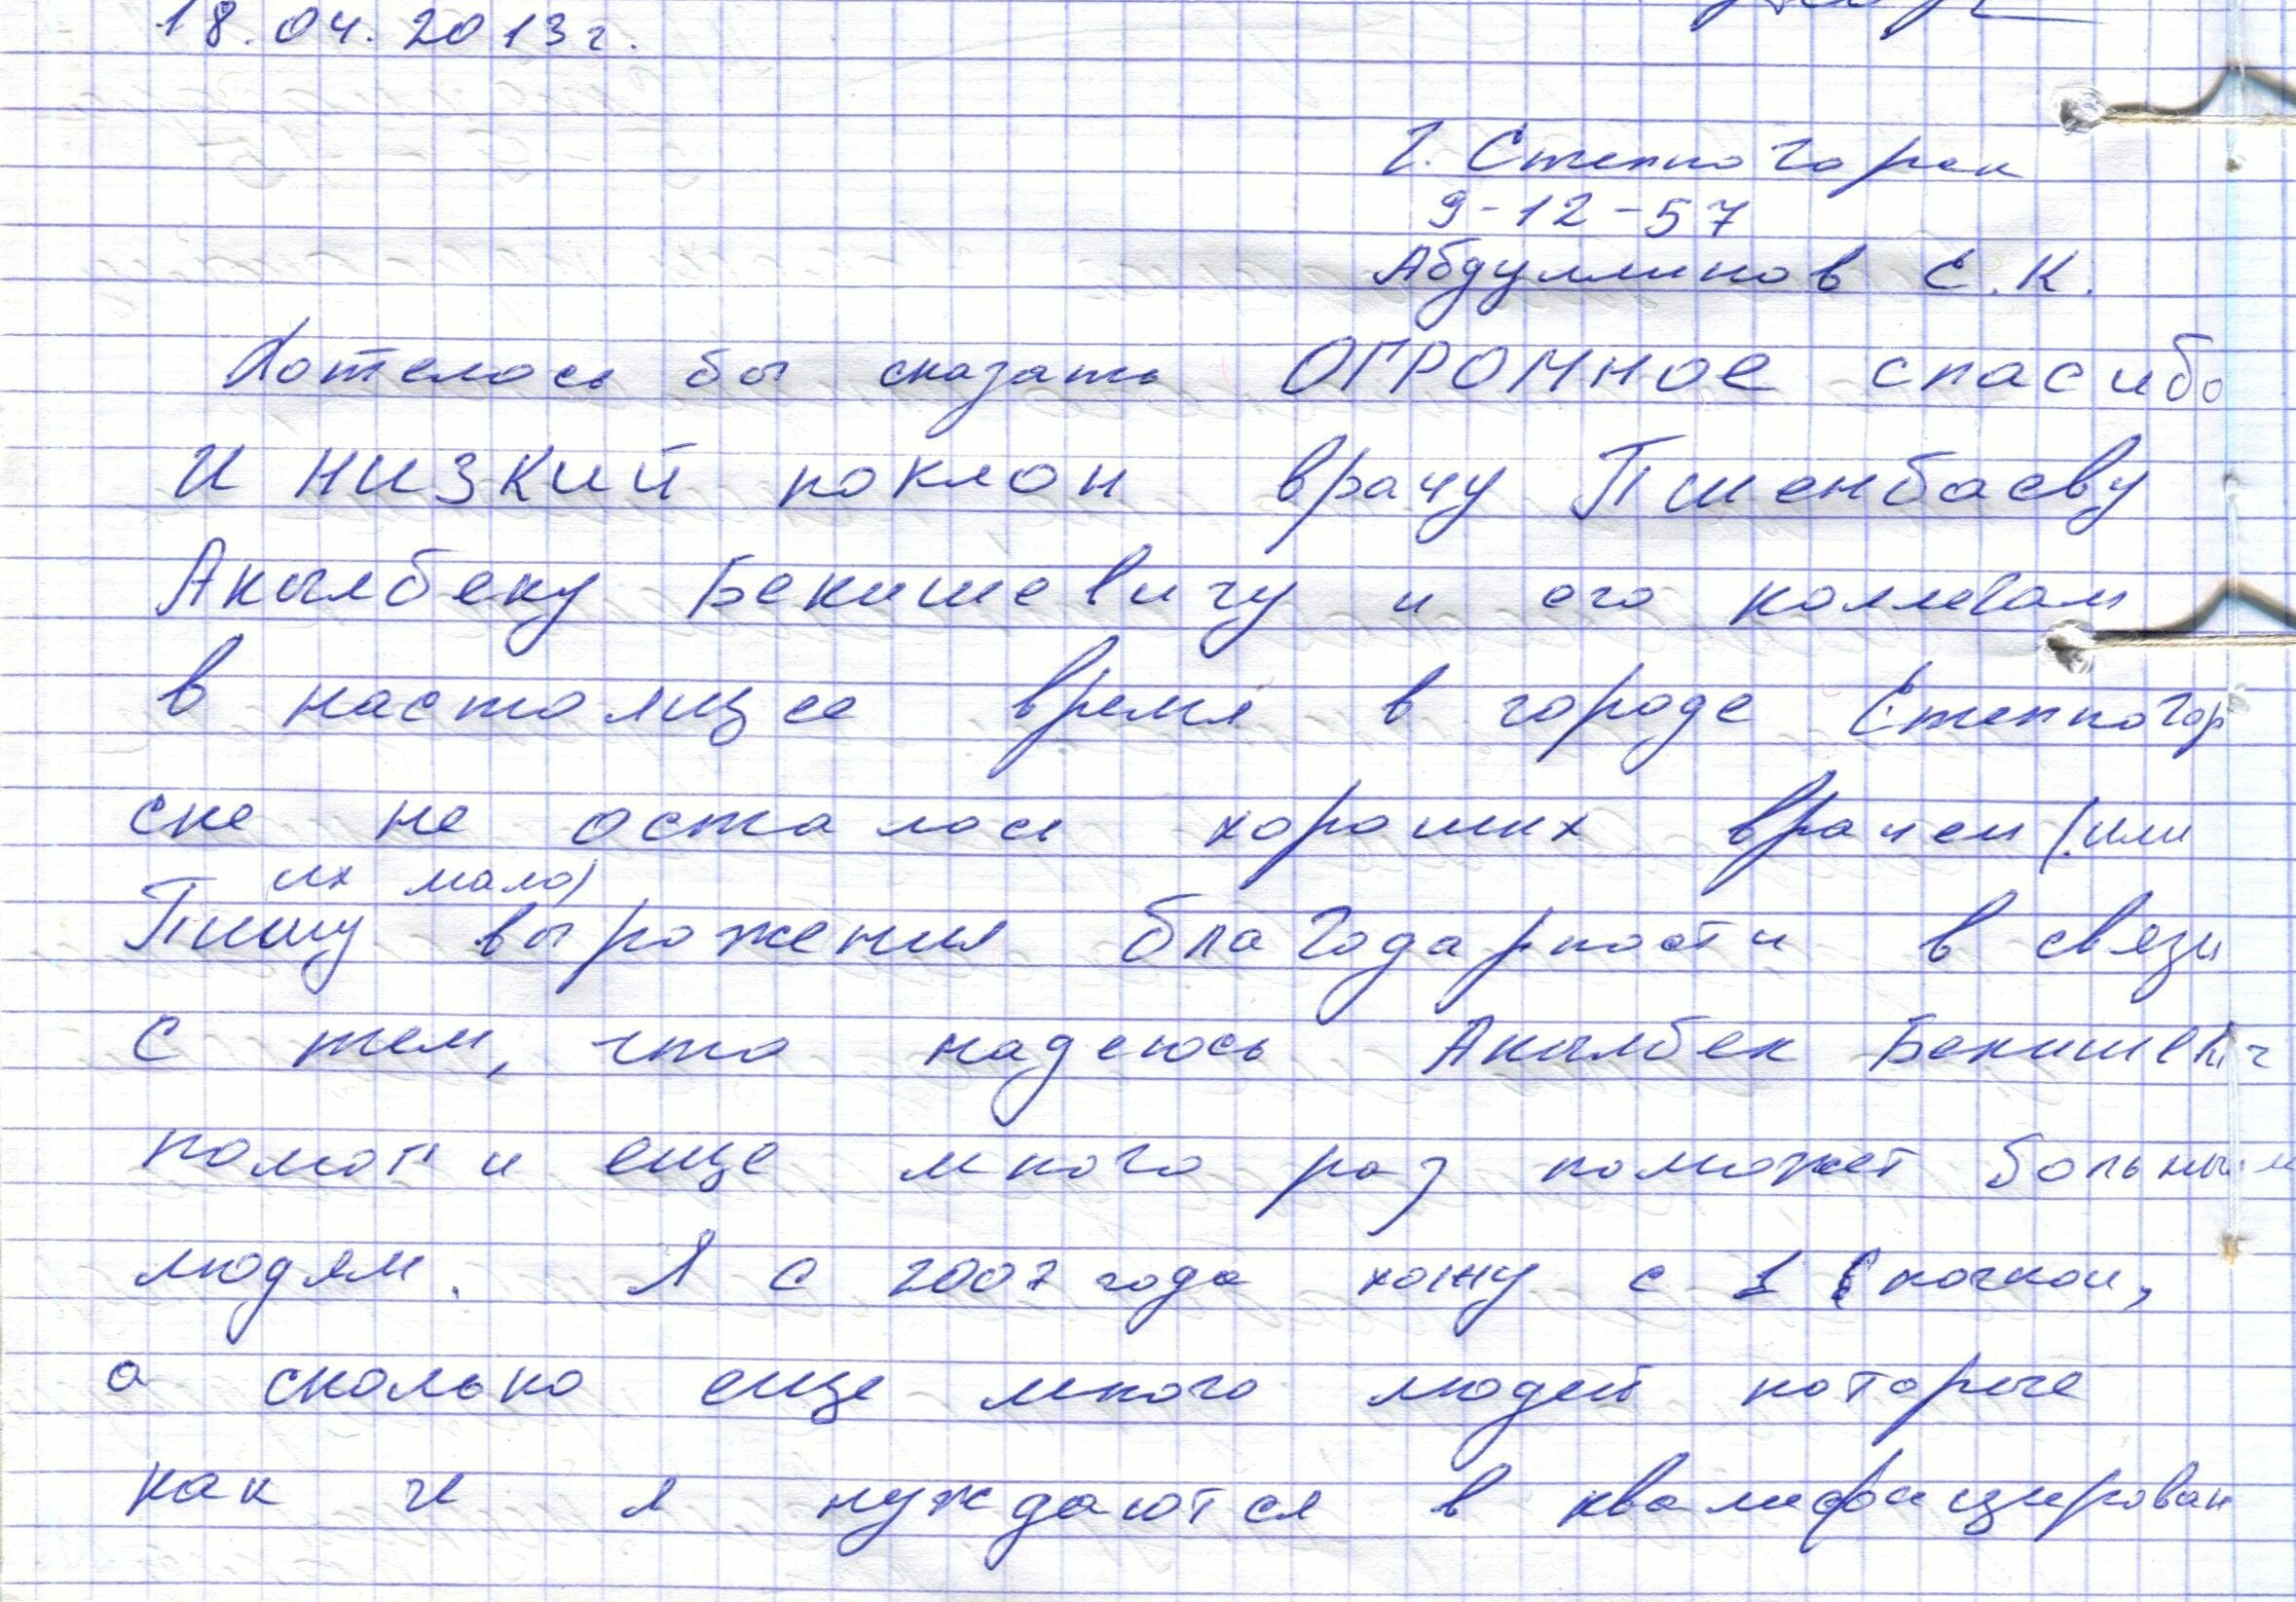 18.04.2013г.
г. Степногорск
9-12-57
Абдулминов Е.К.
Хотелось бы сказать ОГРОМНОЕ спасибо
И НИЗКИЙ поклон врачу Пшенбаеву
Акылбеку Бекишевичу и его коллегам
в настоящее время в городе Степногор
ске не осталось хороших врачеи (или
их мало)
Пишу вырожения благодарности в связи
с тем, что надеюсь Акылбек Бекишевич
помог и еще много раз поможет больным
людям. Я с 2007 года хожу с 1 почкой,
а сколько еще много людей которые
как и я нуждаются в квалифицирован